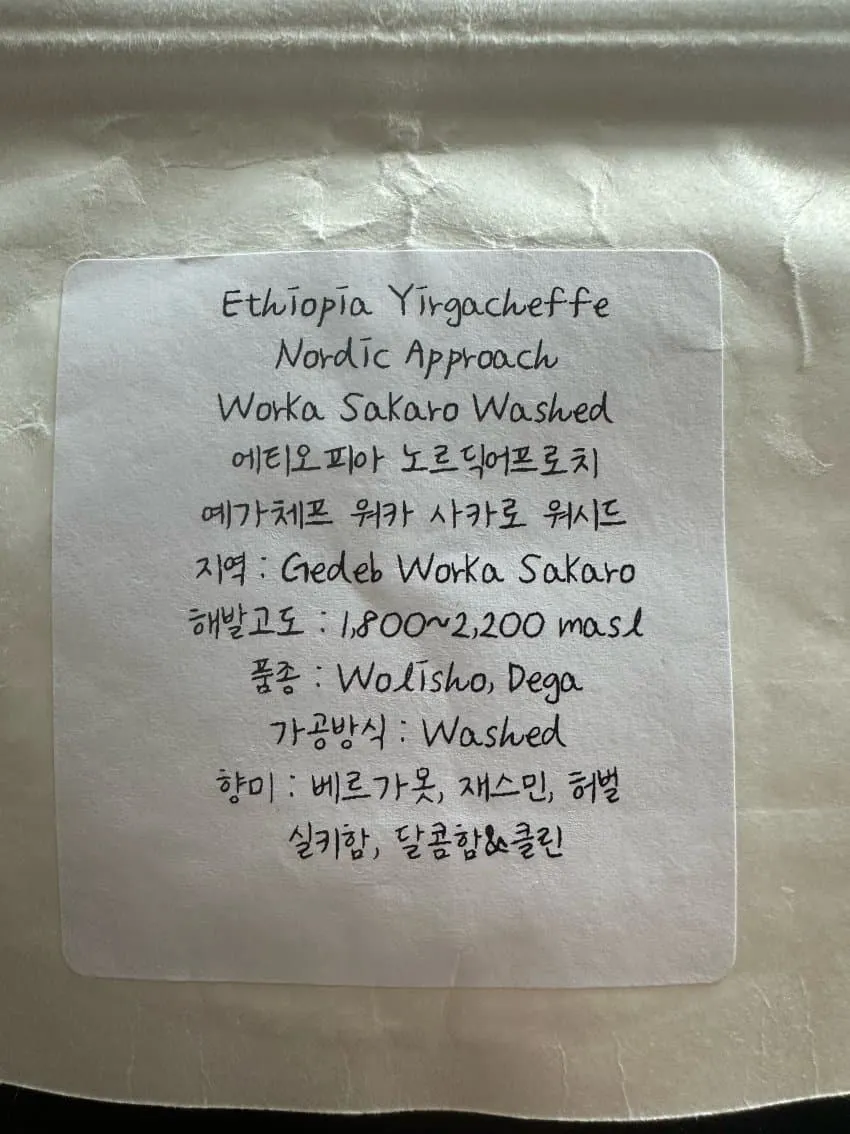 Ethiopia Yirgacheffe
Nordic Approach
Worka Sakaro Washed
에티오피아 노르딕어프로치
예가체프 워카 사카로 워시드
지역 : Gedeb Worka Sakaro
해발고도 : 1,800~2,200 masl
품종 : Wolisho, Dega
가공방식 : Washed
향미 : 베르가못, 재스민, 허벌
실키함, 달콤함&클린